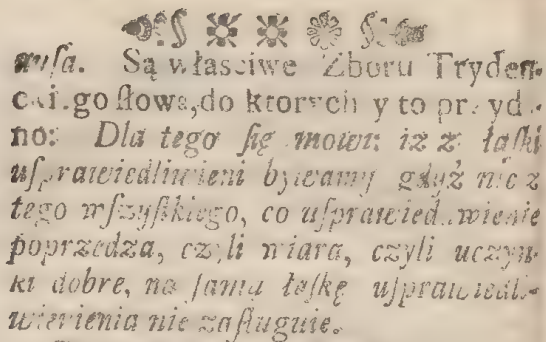 Są własciwe Zboru Tryden-
 słowa, do ktorych y to przyd
no: Dla tego ſię mowi: iż z łaſki
uſprawiedliwieni bywamy gdyż nic z
tego wſzyſtkiego, co uſprawiedliwienie
poprzedza, czyli wiara, czyli uczyn-
ki dobre, na ſamą łaſkę uſprawiedli-
wienia nie zaſługuie.